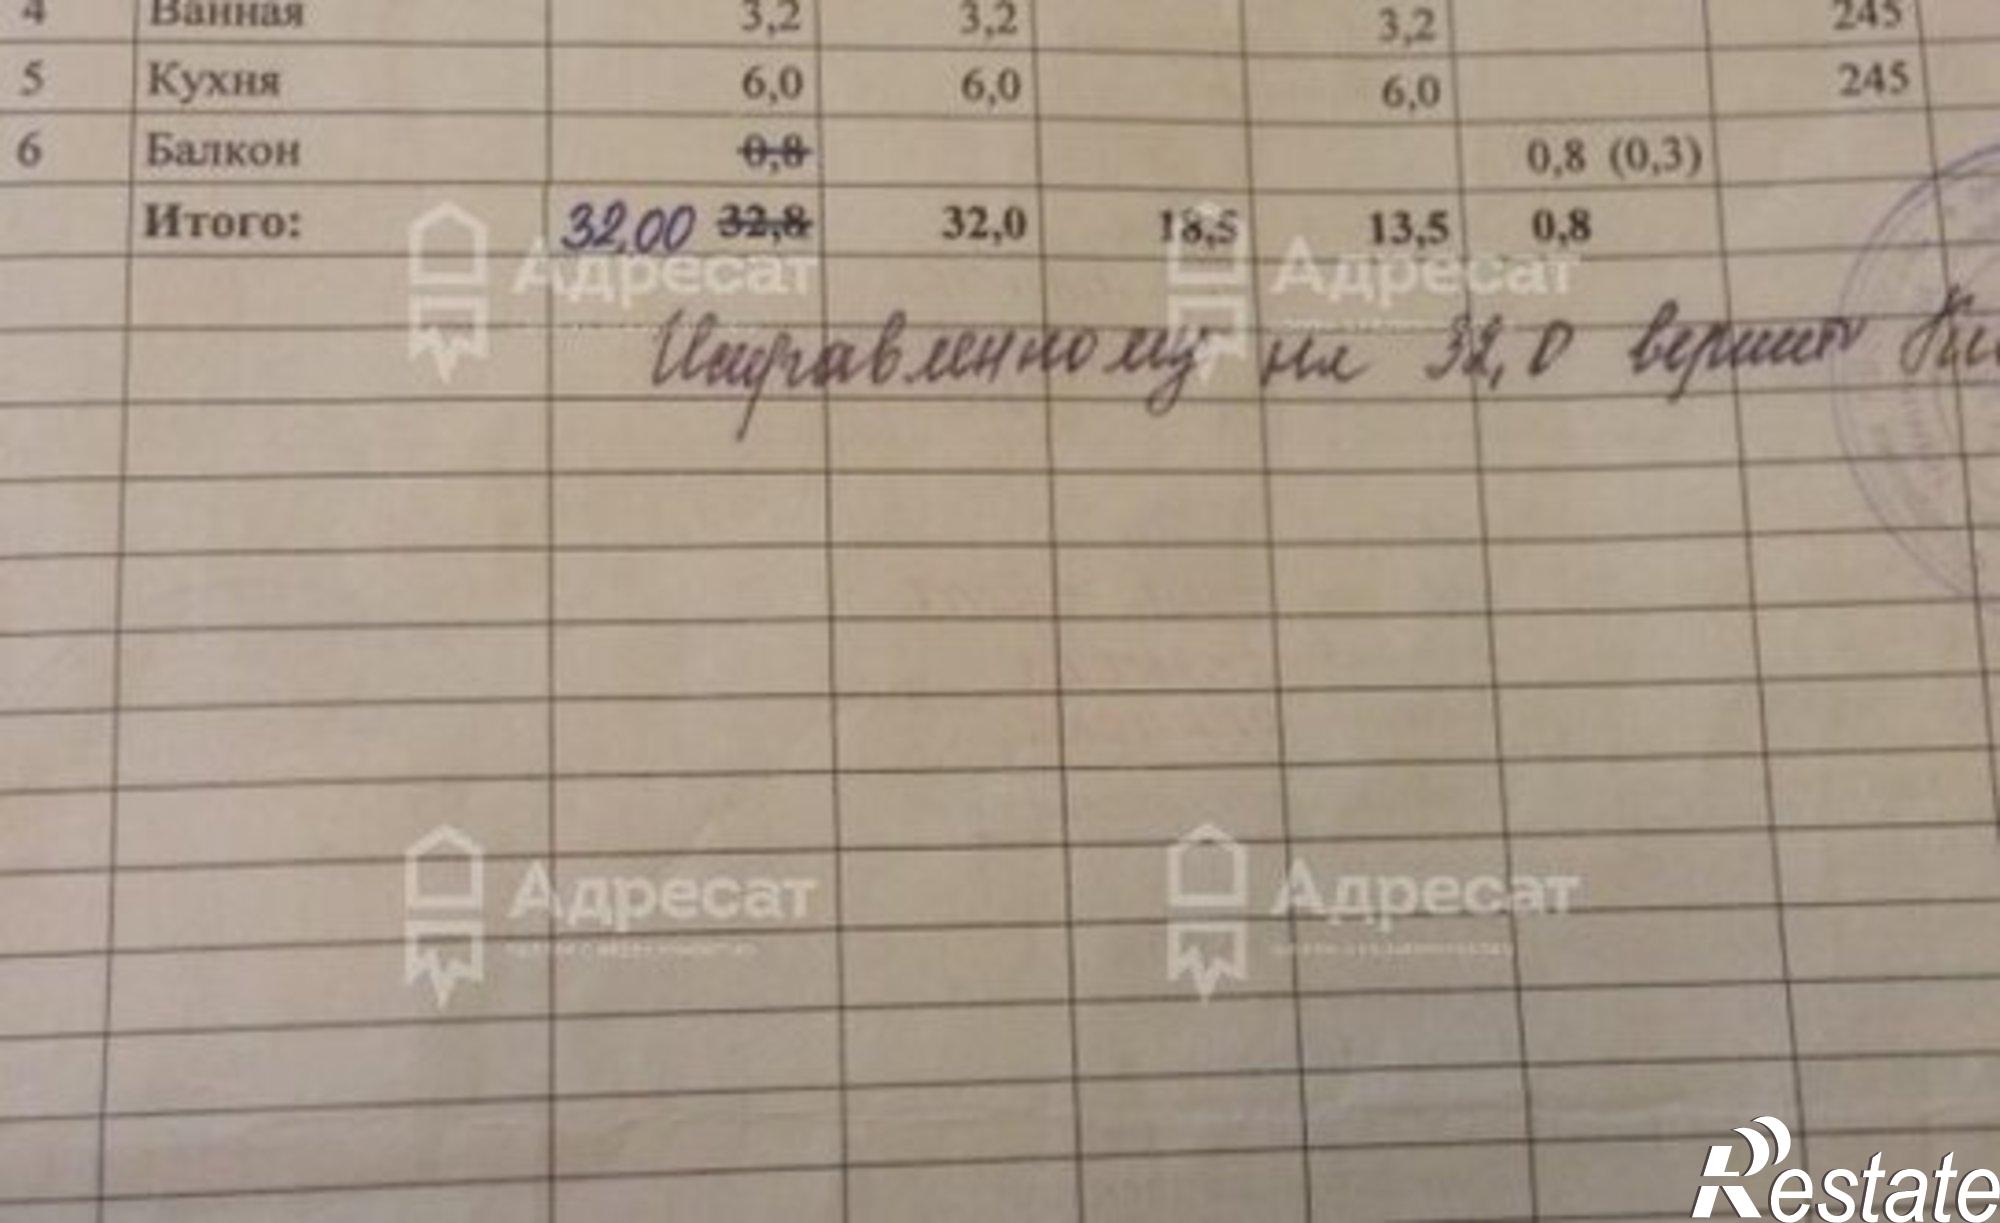 4 Ванная 3,2 3,2 3,2 245
5 Кухня 6,0 6,0 6,0 245
6 Балкон 0,8 0,8 (0,3)
Итого: 32,00 32,8 32,0 18,5 13,5 0,8
Исправленному на 32,0 верить
Адресат Адресат
Адресат Адресат
Restate